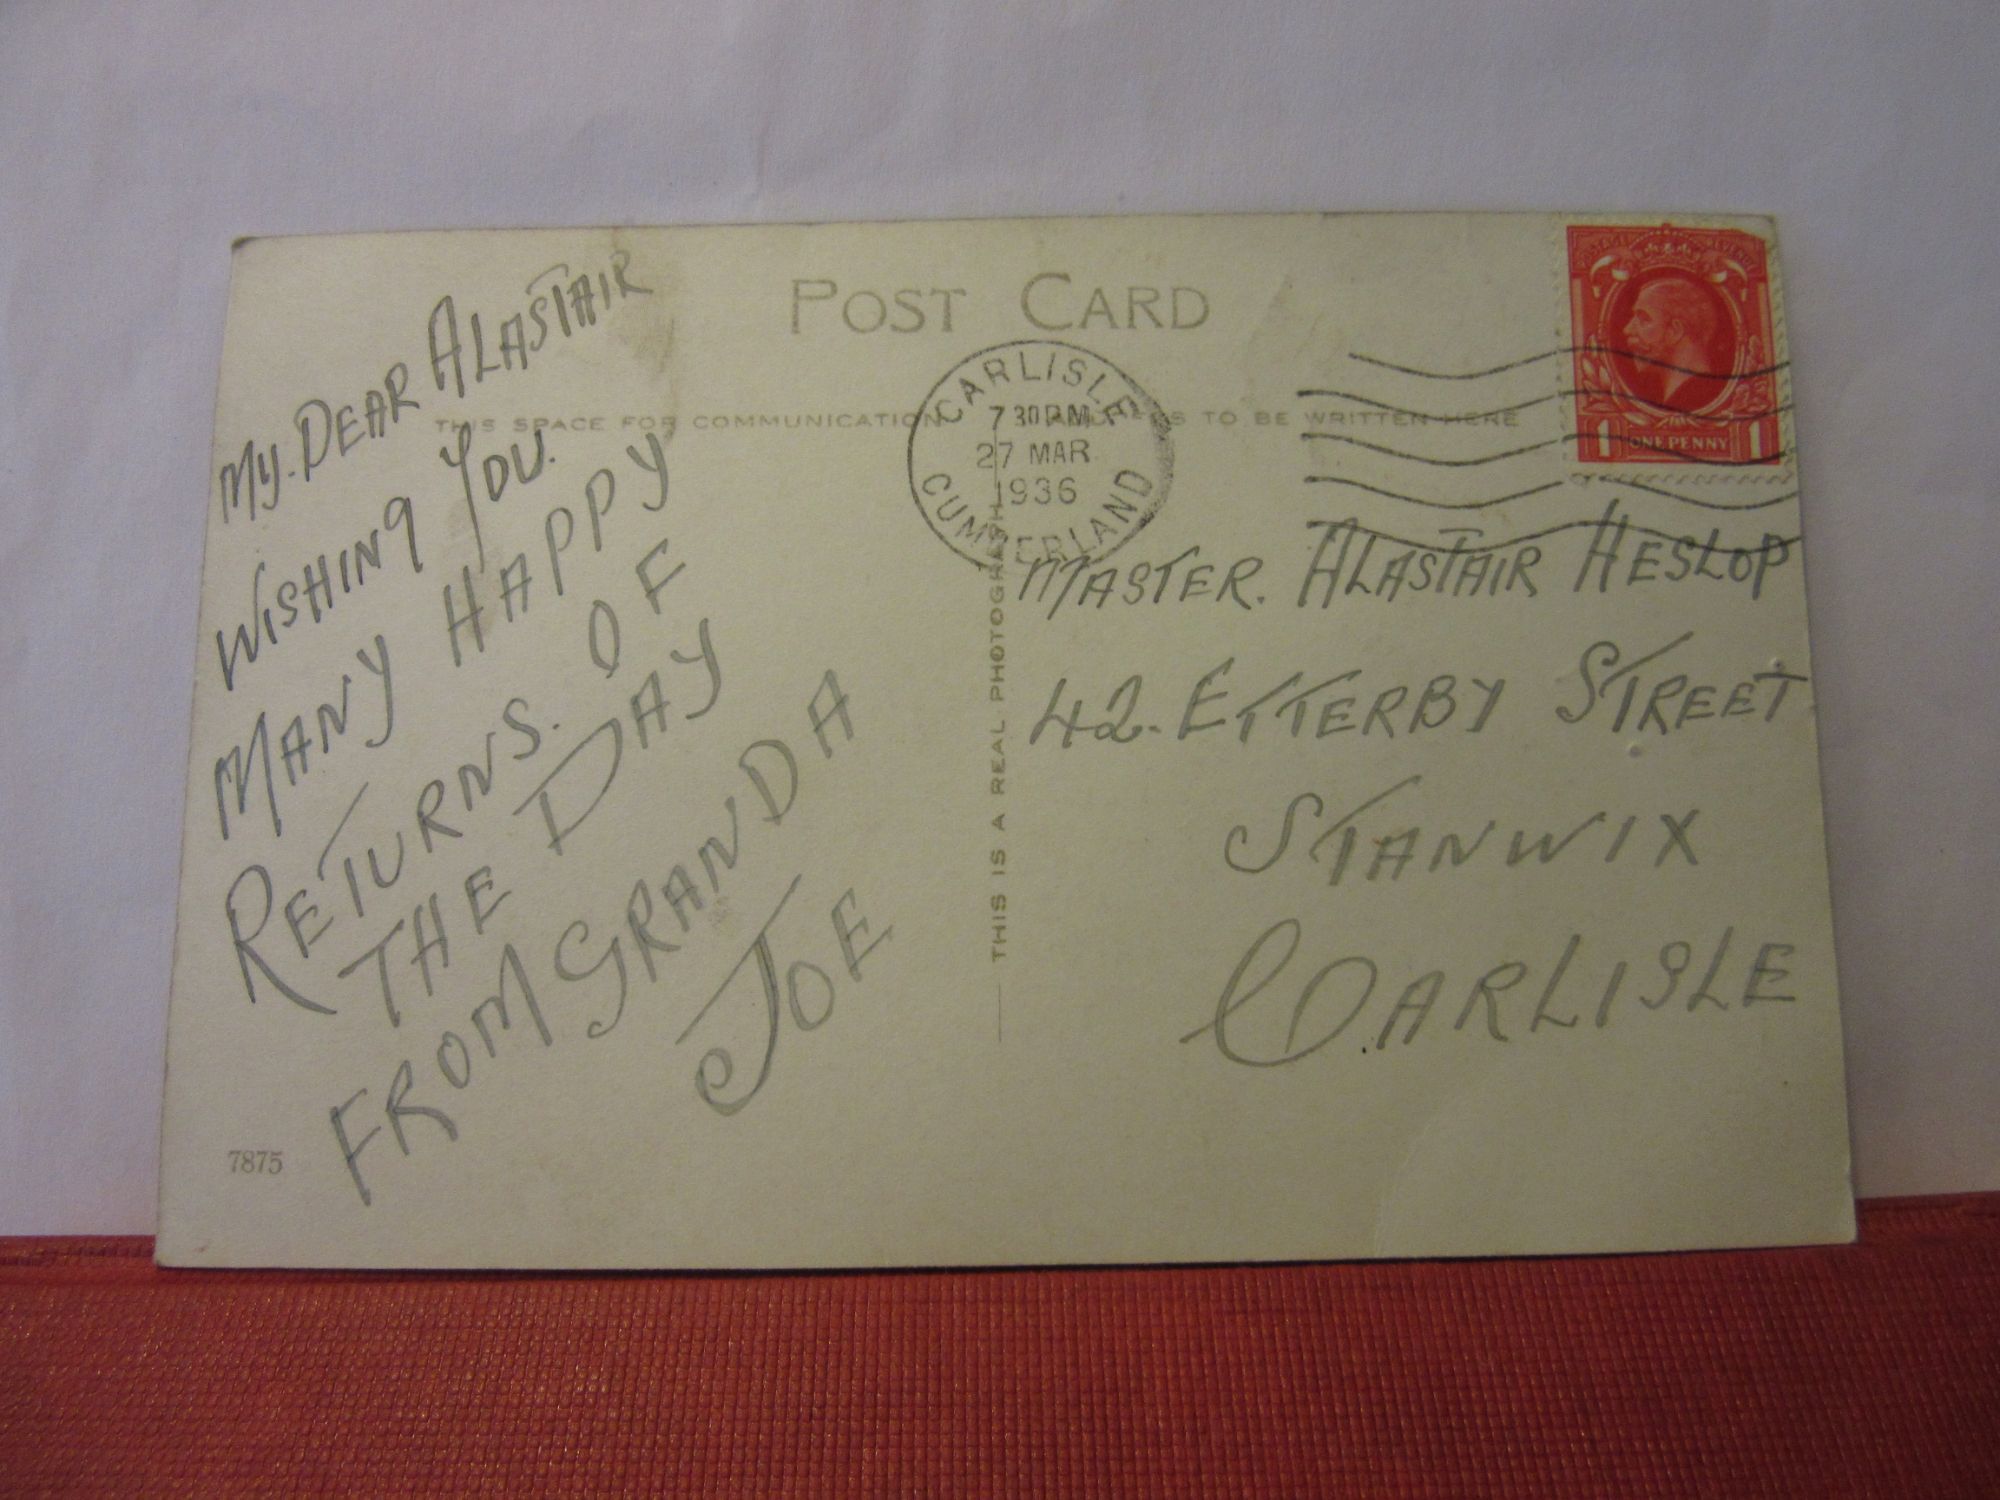 POST CARD
THIS SPACE FOR COMMUNICATION
TO BE WRITTEN HERE
CARLISLE
7 30 PM
27 MAR
1936
CUMBERLAND
POSTAGE REVENUE
1 ONE PENNY 1
MY. DEAR ALASTAIR
WISHING YOU.
MANY HAPPY
RETURNS. OF
THE DAY
FROM GRANDA
JOE
THIS IS A REAL PHOTOGRAPH
MASTER. ALASTAIR HESLOP
42. ETTERBY STREET
STANWIX
CARLISLE
7875